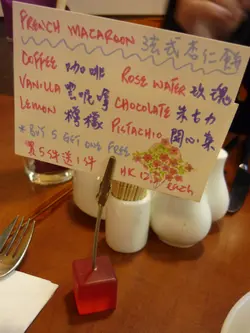 FRENCH MACAROON 法式杏仁餅
COFFEE 咖啡 ROSE WATER 玫瑰
VANILLA 雲呢拿 CHOCOLATE 朱古力
LEMON 檸檬 PISTACHIO 開心果
*BUY 5 GET ONE FREE
買5件送1件 HK 12 each